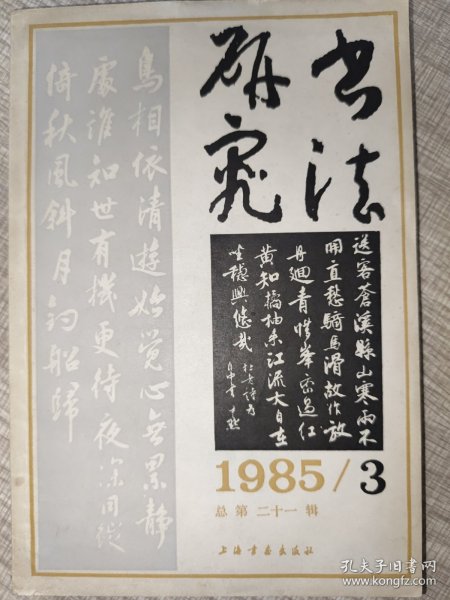 书法
研究
送客苍溪县山寒雨不
开直愁骑马滑故作放
舟回青惜峰峦过
黄知橘柚来江流大自在
坐稳兴悠哉
鸟相依清游始觉心无累静
处谁知世有机更待夜深同
倚秋风斜月钓船归
1985/3
总第二十一辑
上海书画出版社
孔夫子旧书网
www.kongfz.com